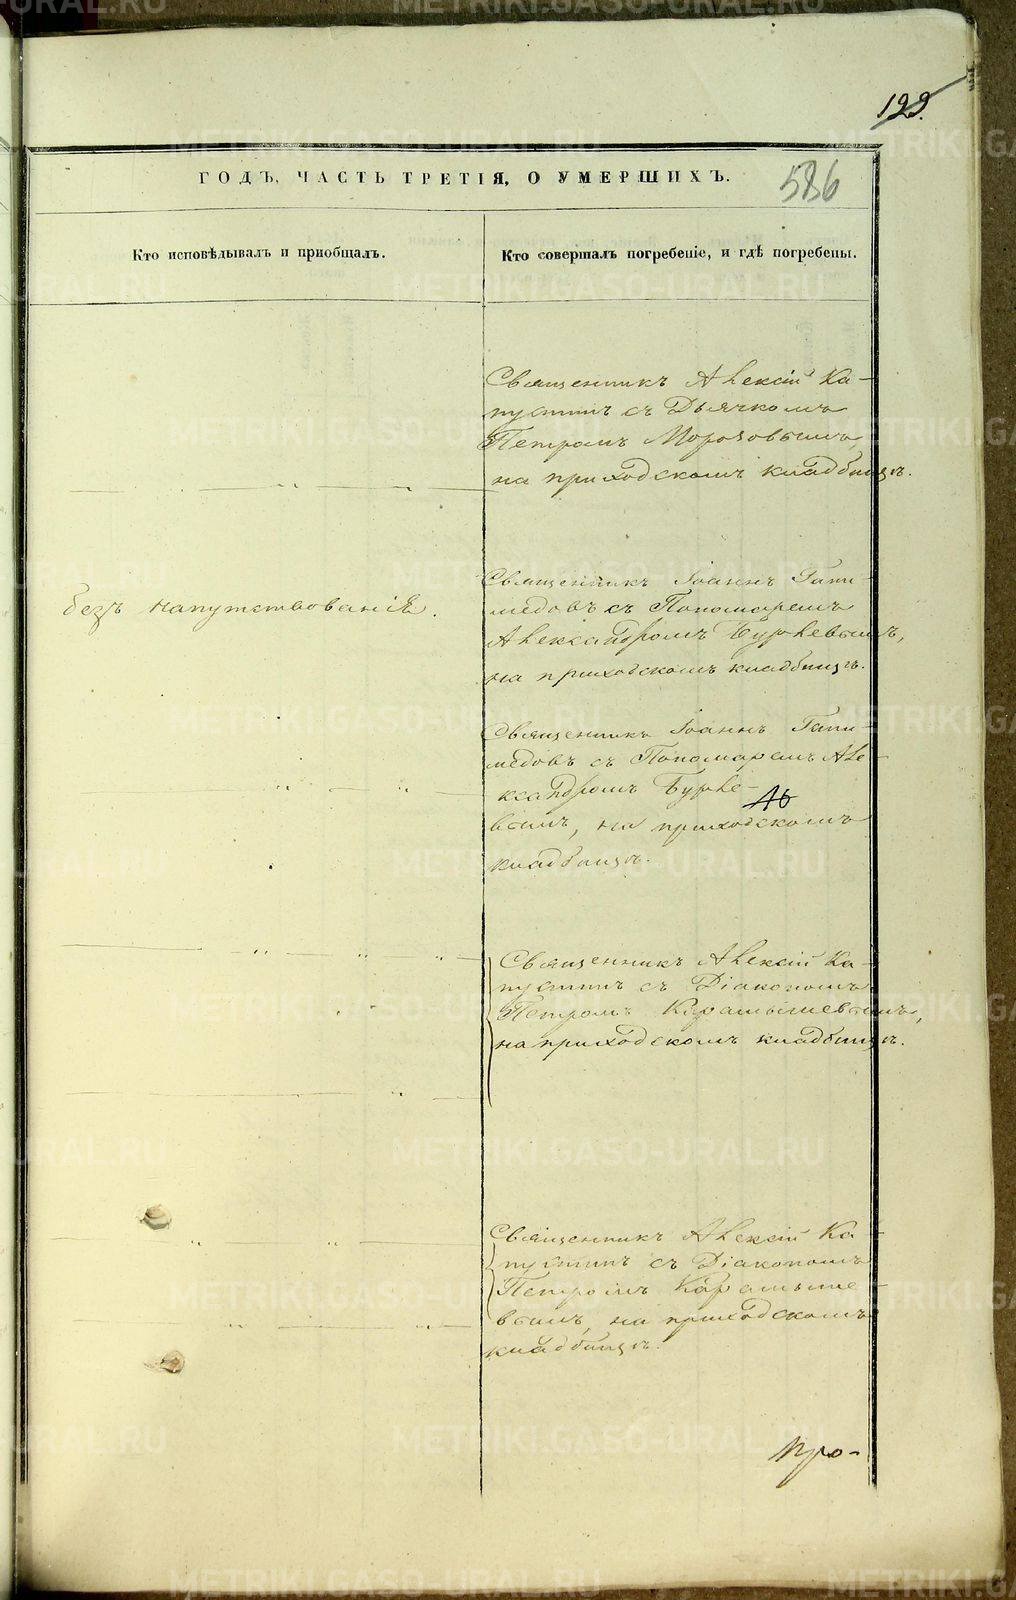 122.
586
ГОДЪ, ЧАСТЬ ТРЕТІЯ, О УМЕРШИХЪ.
Кто исповѣдывалъ и пріобщалъ.
Кто совершалъ погребеніе, и гдѣ погребены.
Священникъ Алексій Ка-
пустинъ съ Дьячкомъ
Петромъ Морозовымъ,
на приходскомъ кладбищѣ.
безъ напутствованія.
Священникъ Іоаннъ Гани-
медовъ съ Пономаремъ
Александромъ Бурлевымъ,
на приходскомъ кладбищѣ.
Священникъ Іоаннъ Гани-
медовъ съ Пономаремъ Але-
ксандромъ Бурле-
вымъ, на приходскомъ
кладбищѣ.
Священникъ Алексій Ка-
пустинъ съ Діакономъ
Петромъ Карамышевымъ,
на приходскомъ кладбищѣ.
Священникъ Алексій Ка-
пустинъ съ Діакономъ
Петромъ Карамыше-
вымъ, на приходскомъ
кладбищѣ.
Про-
METRIKI.GASO-URAL.RU